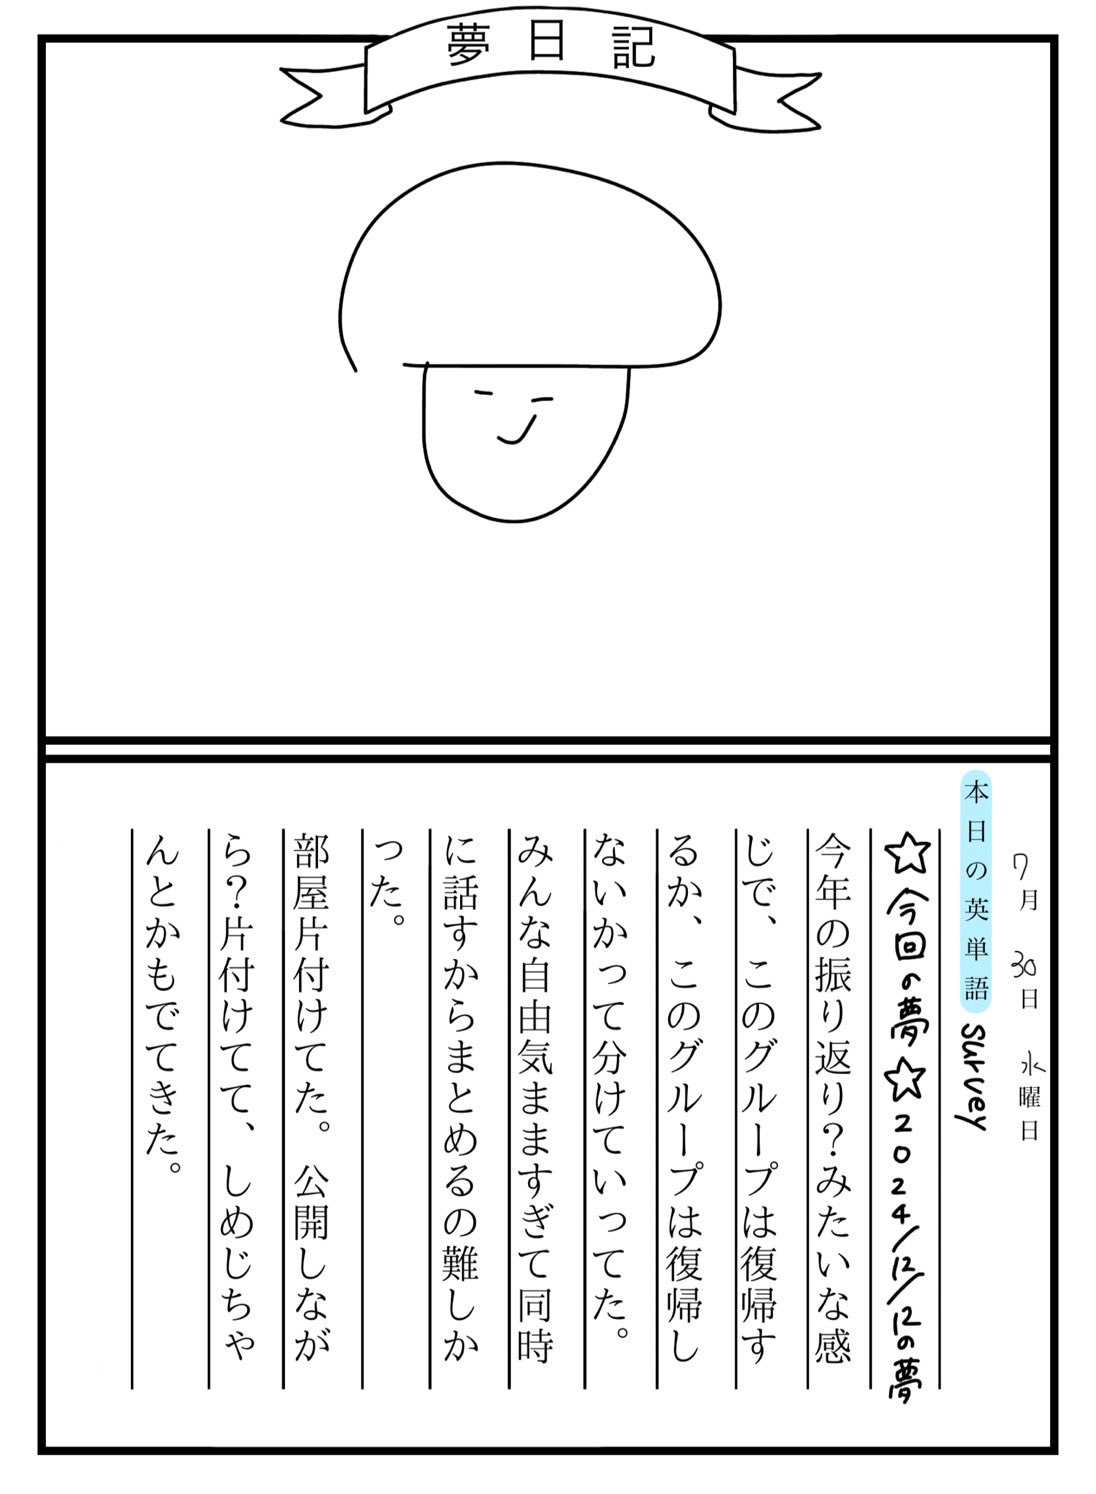 夢日記
7月 30日 水曜日
本日の英単語 survey
☆今回の夢☆2024/12/12の夢
今年の振り返り？みたいな感
じで、このグループは復帰す
るか、このグループは復帰し
ないかって分けていってた。
みんな自由気ままますぎて同時
に話すからまとめるの難しか
った。
部屋片付けてた。公開しなが
ら？片付けてて、しめじちゃ
んとかもでてきた。